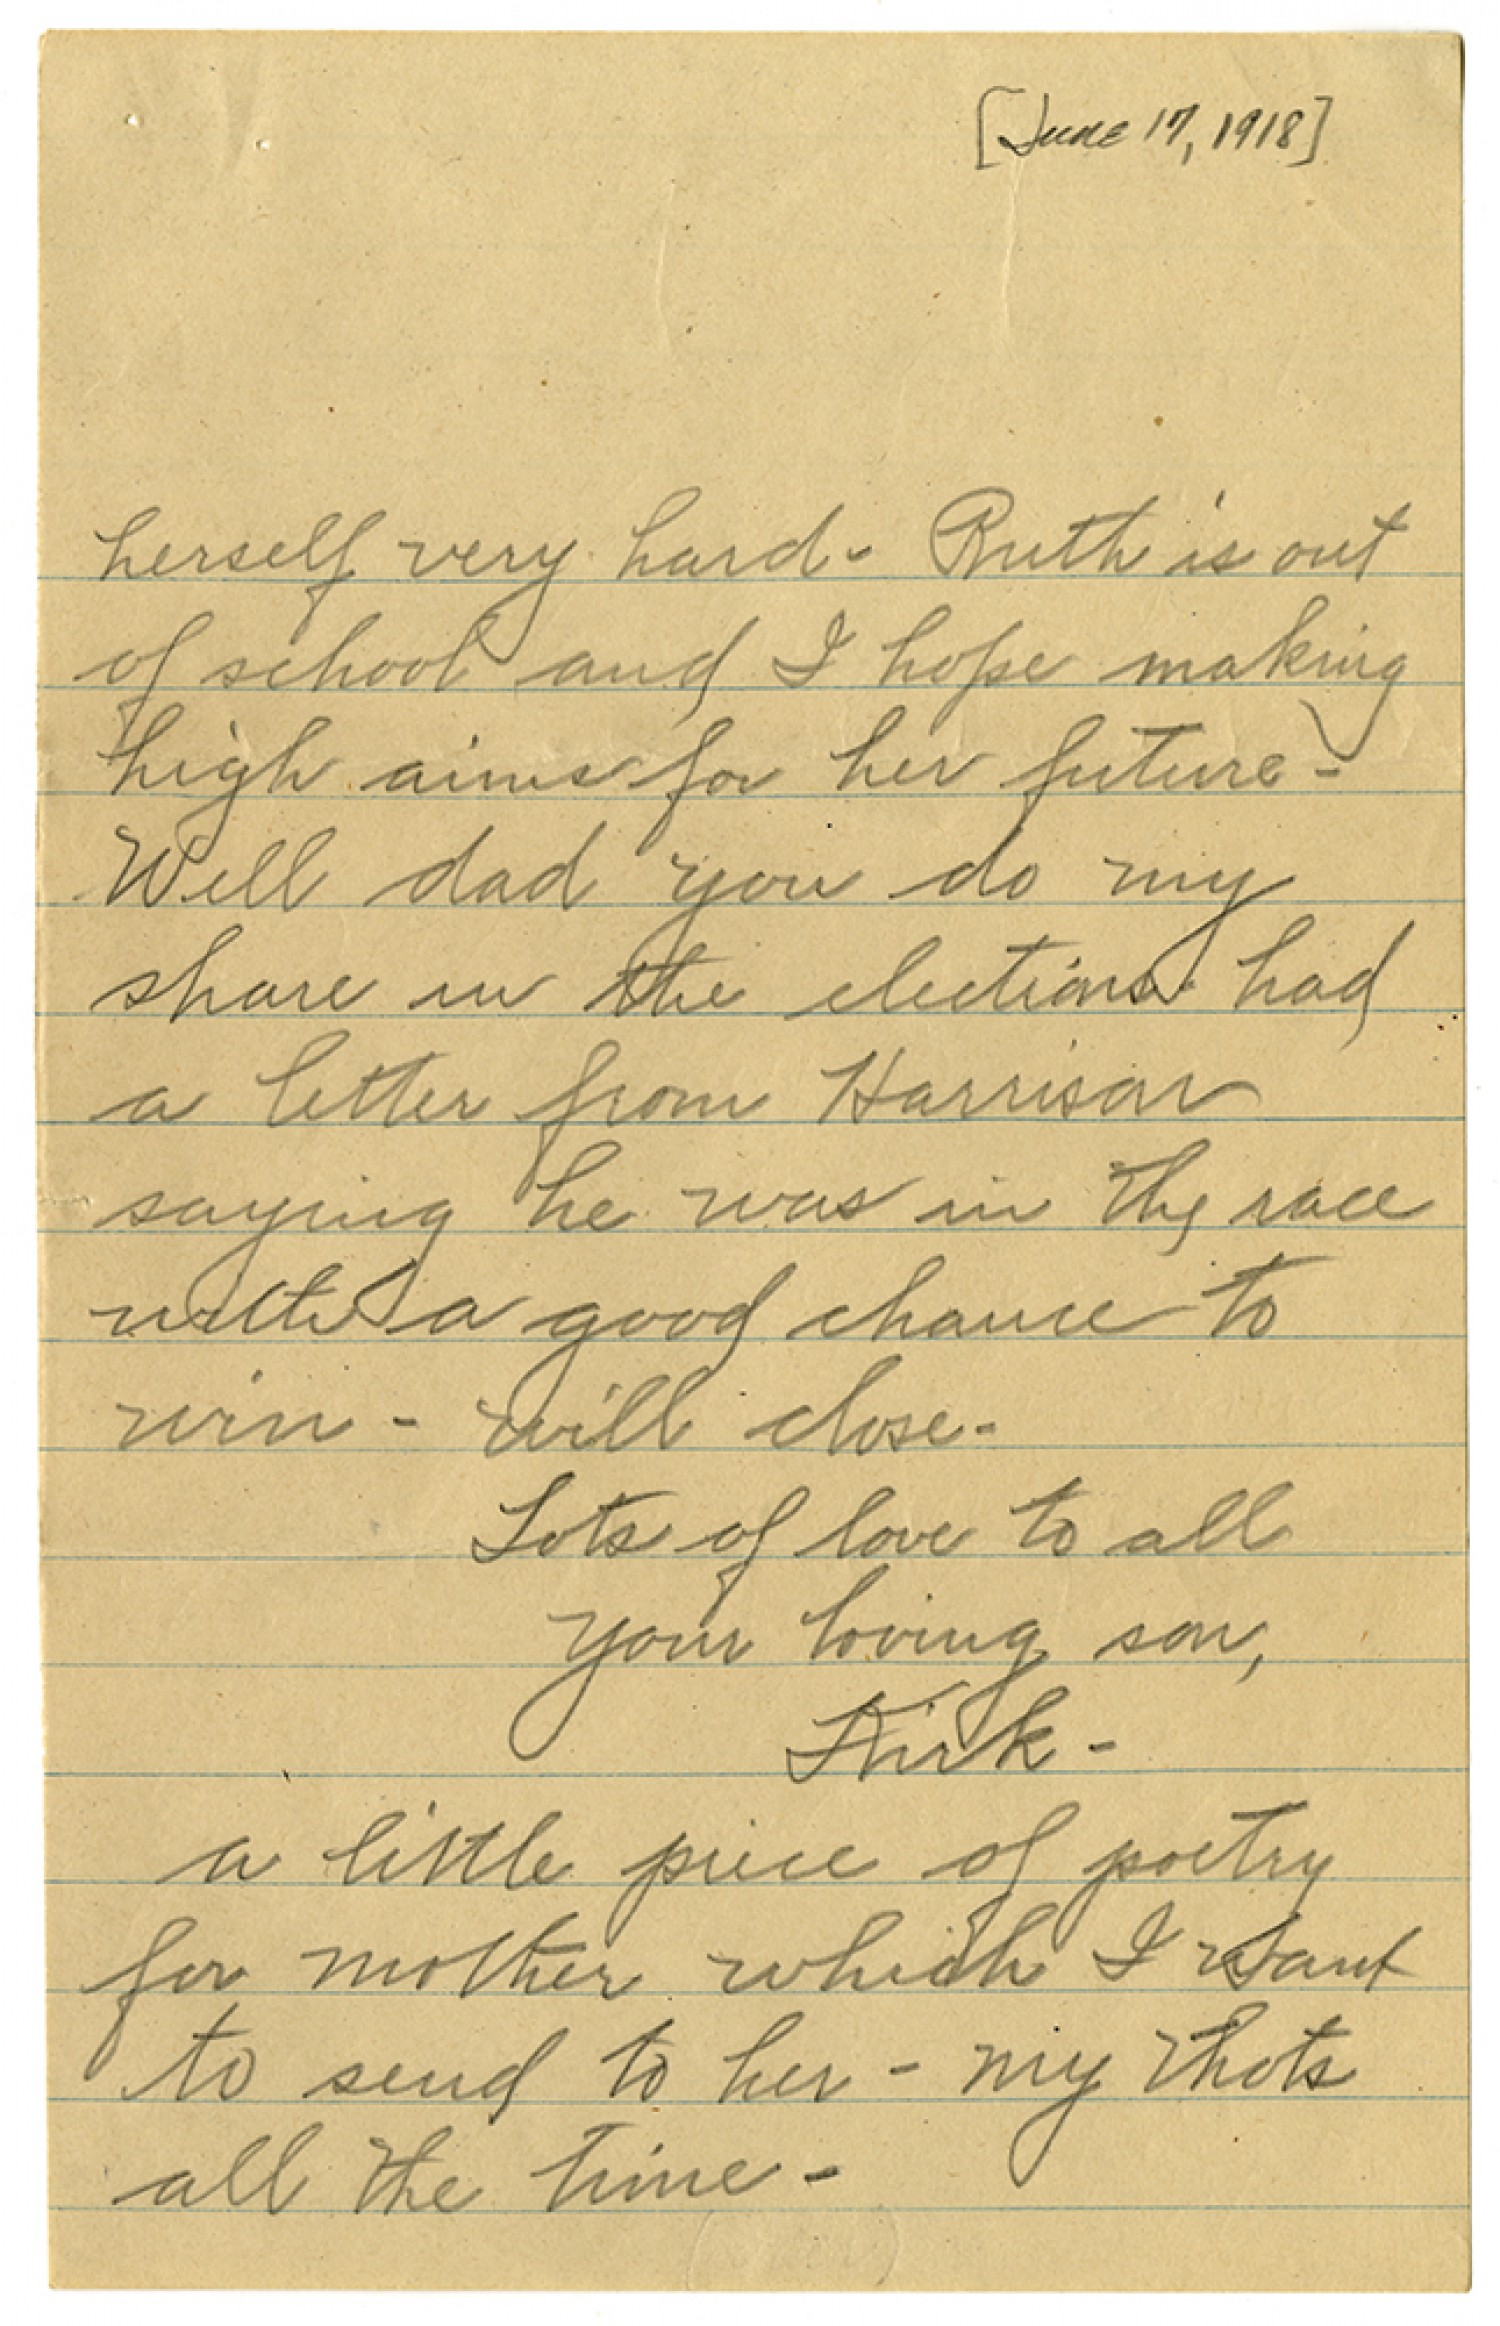 [June 17, 1918]
herself very hard - Ruth is out
of school and I hope making
high aims for her future -
Well dad you do my
share in the elections had
a letter from Harrison
saying he was in the race
with a good chance to
win - will close -
Lots of love to all
your loving son,
Kirk -
a little piece of poetry
for mother which I want
to send to her - my thots
all the time -